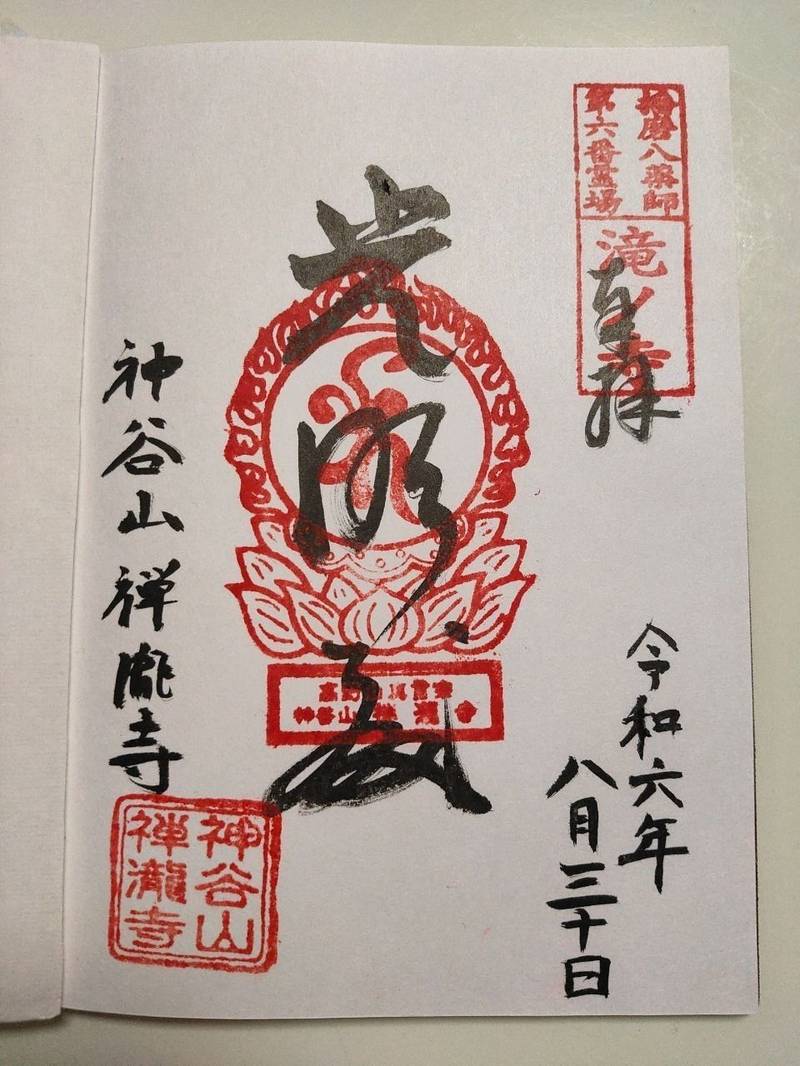 播磨八薬師
第六番霊場
滝ノ寺
奉拝
令和六年
八月三十日
光明
高野山真言宗
神谷山禅瀧寺
神谷山禅瀧寺
神谷山
禅瀧寺